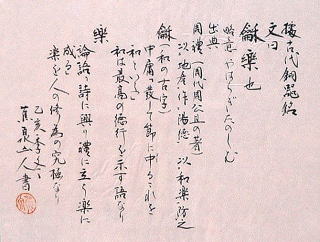 據古代銅器銘
文曰
龢樂也
略意 やはらぎたのしむ
出典
周禮(周代周公旦の著)
以地產作陽德以和樂防之
龢(和の古字)
中庸の發して節に中るこれを
和といふ
和は最高の德行を示す語なり
樂
論語 詩に興り禮に立ち樂に
成る
楽を人の修為の究極なり
乙亥季冬
山人書